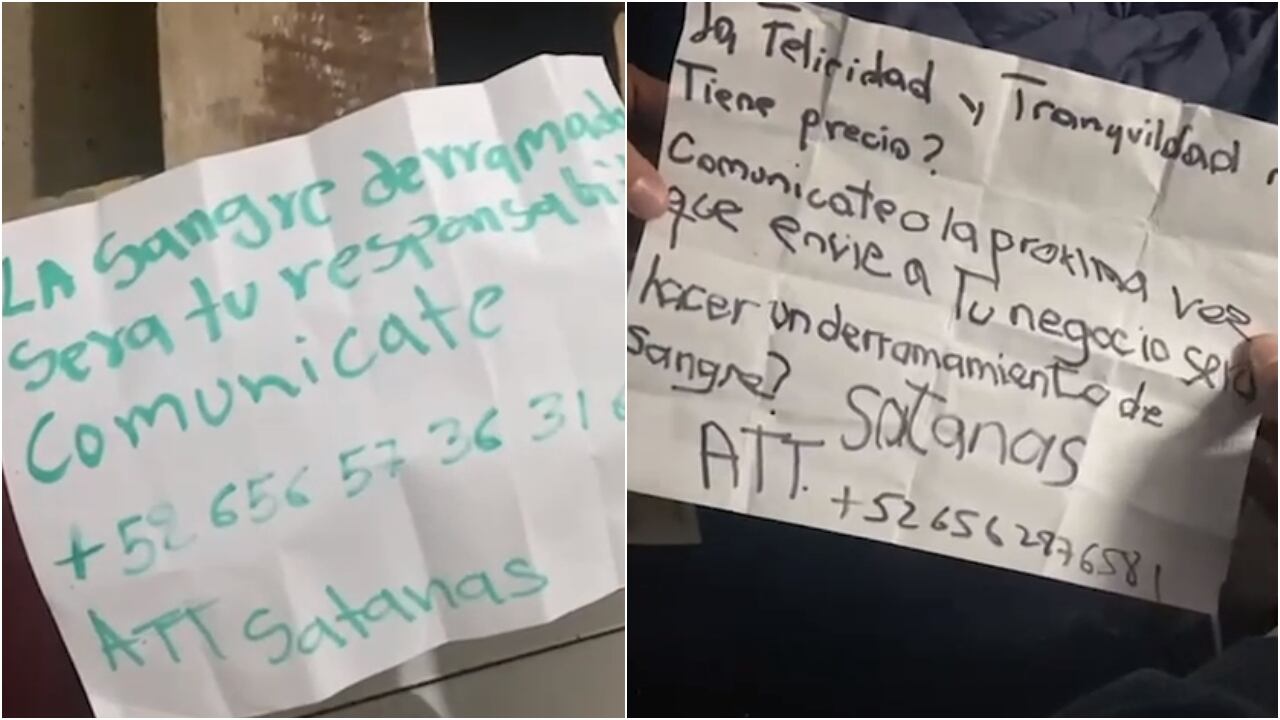 LA Sangre derramada
Sera tu responsabili
Comunicate
+52 656 57 36 31
ATT Satanas
la Felicidad y Tranquildad
Tiene precio?
Comunicate o la proxima vez
que envie a Tu negocio sera
hacer un derramamiento de
sangre?
Satanas
ATT.
+526562876581